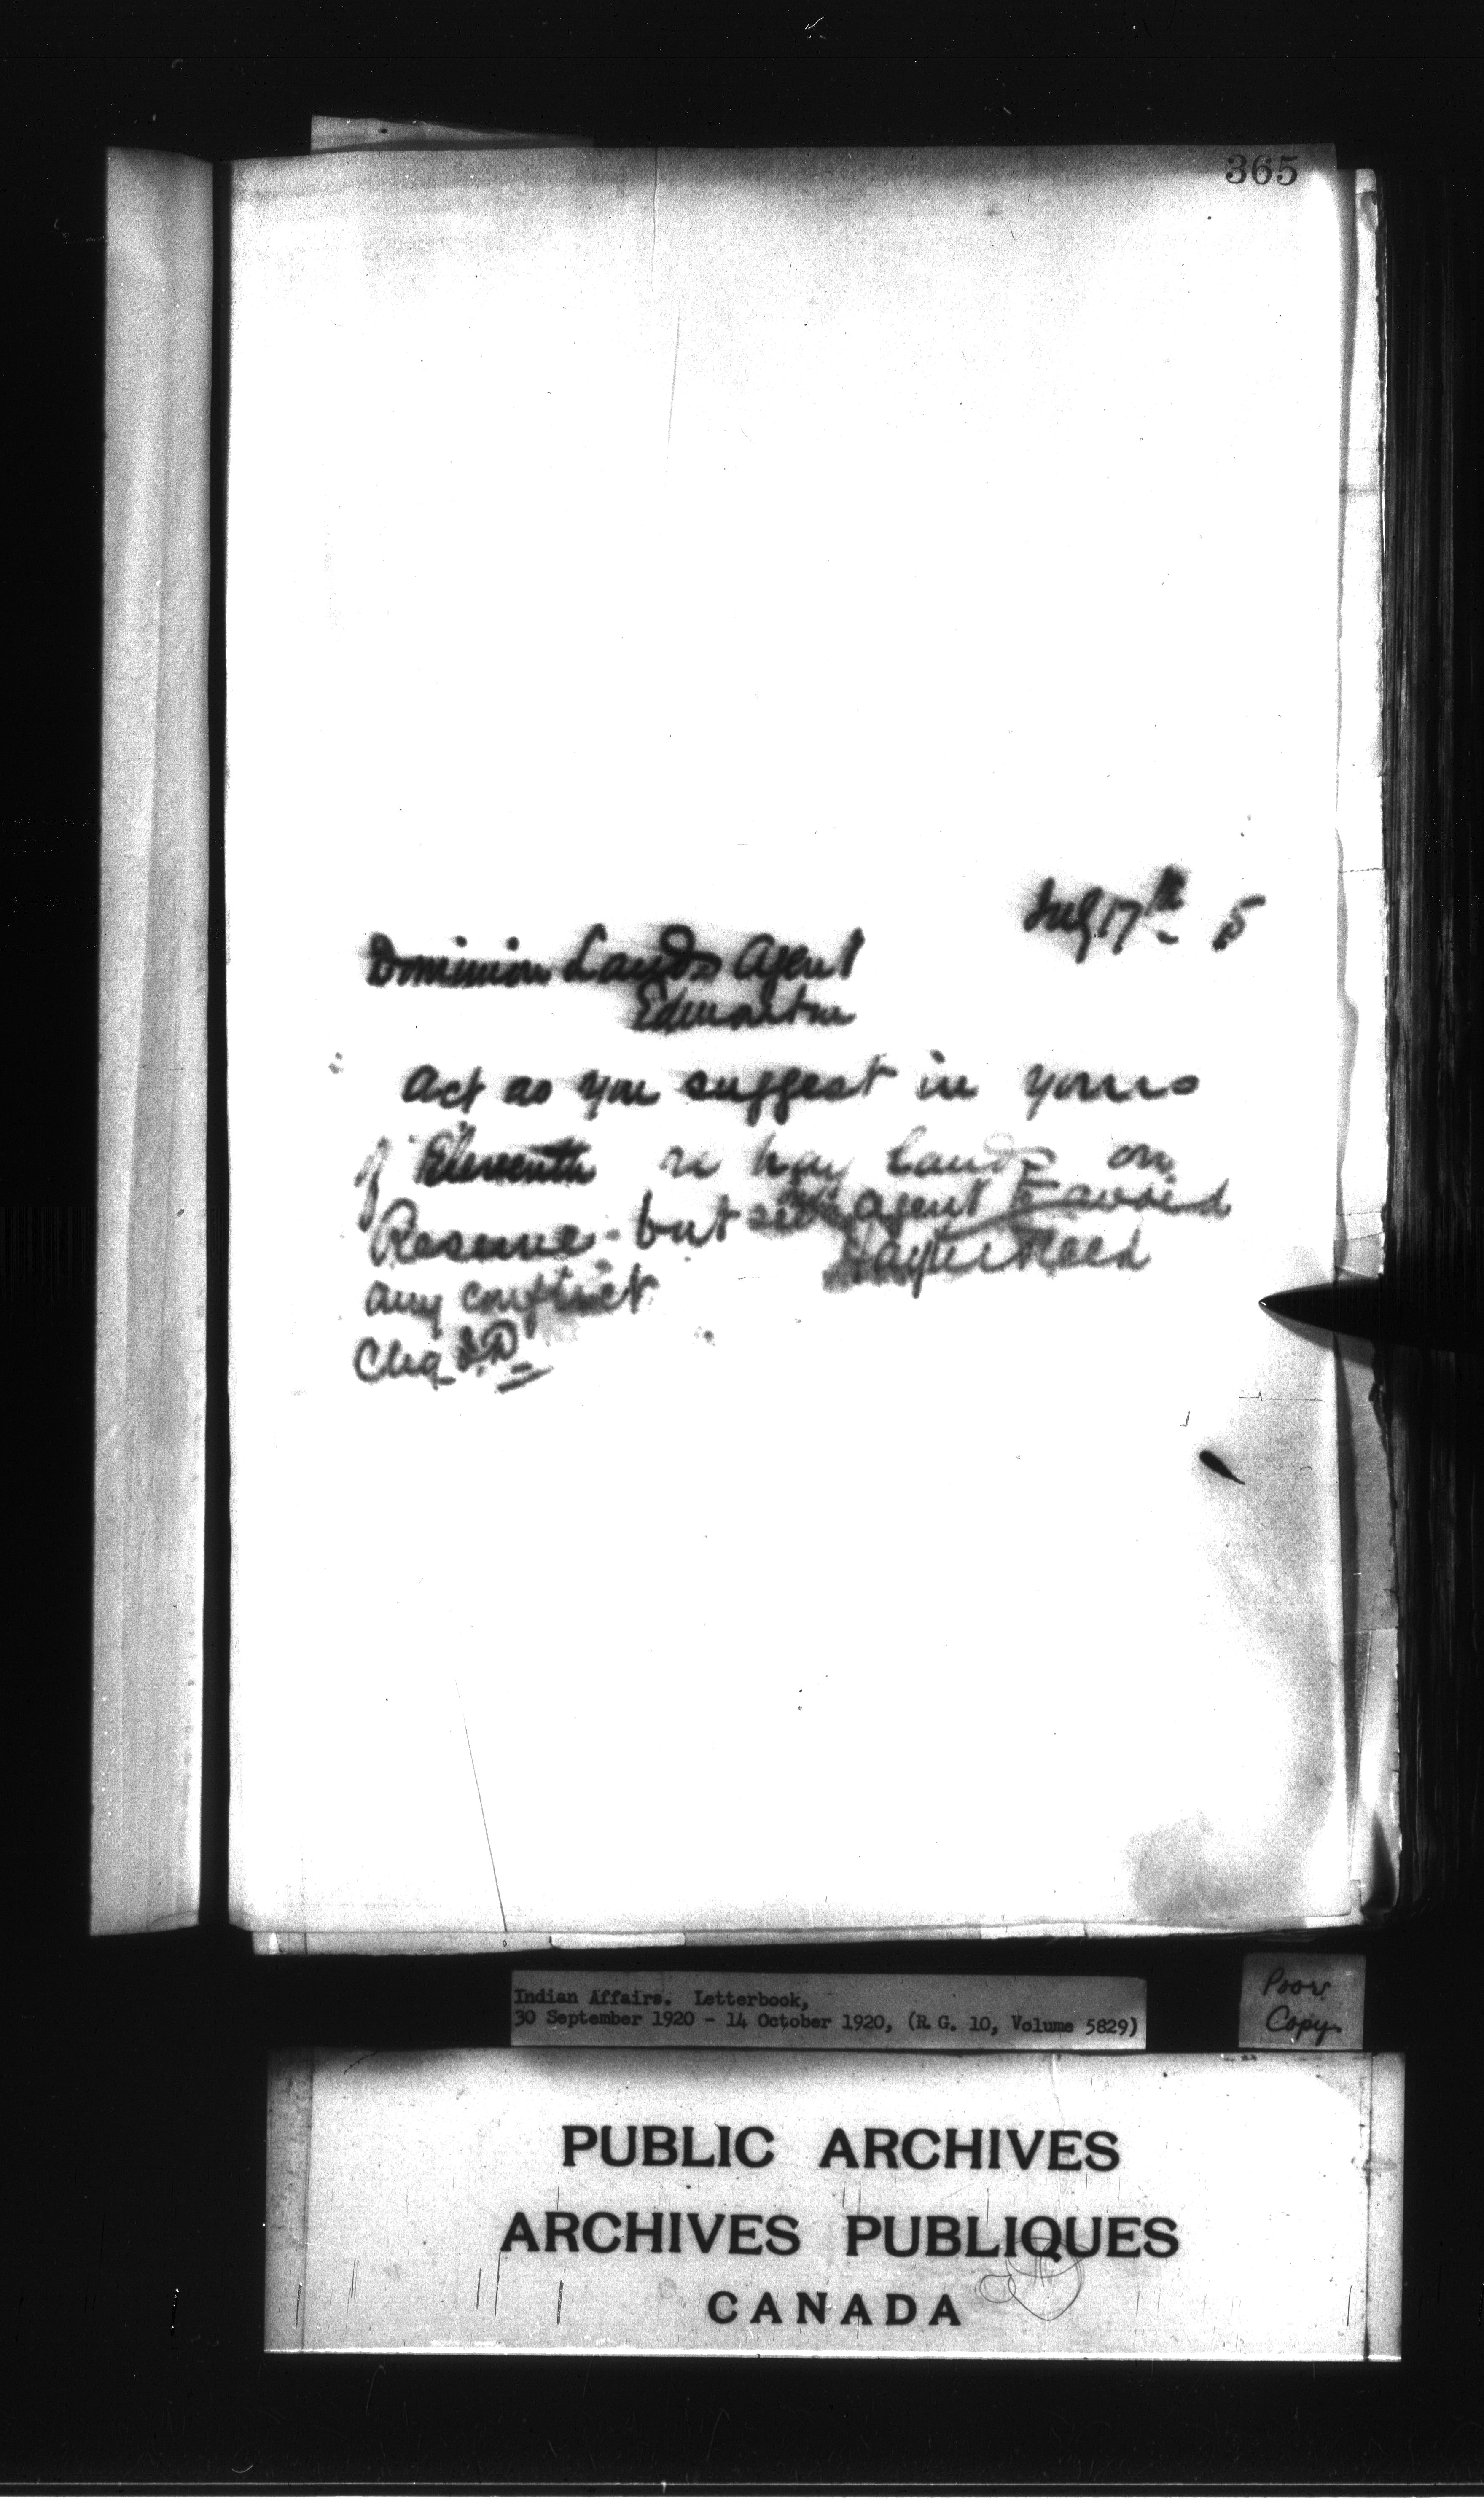 365
July 17th 5
Dominion Lands Agent
Edmonton
Act as you suggest in yours
of Eleventh re hay lands on
Reserve - but see agent to avoid
any conflict
Hayter Reed
Chg I.D.
Indian Affairs. Letterbook,
30 September 1920 - 14 October 1920, (R. G. 10, Volume 5829)
Poor
Copy
PUBLIC ARCHIVES
ARCHIVES PUBLIQUES
CANADA